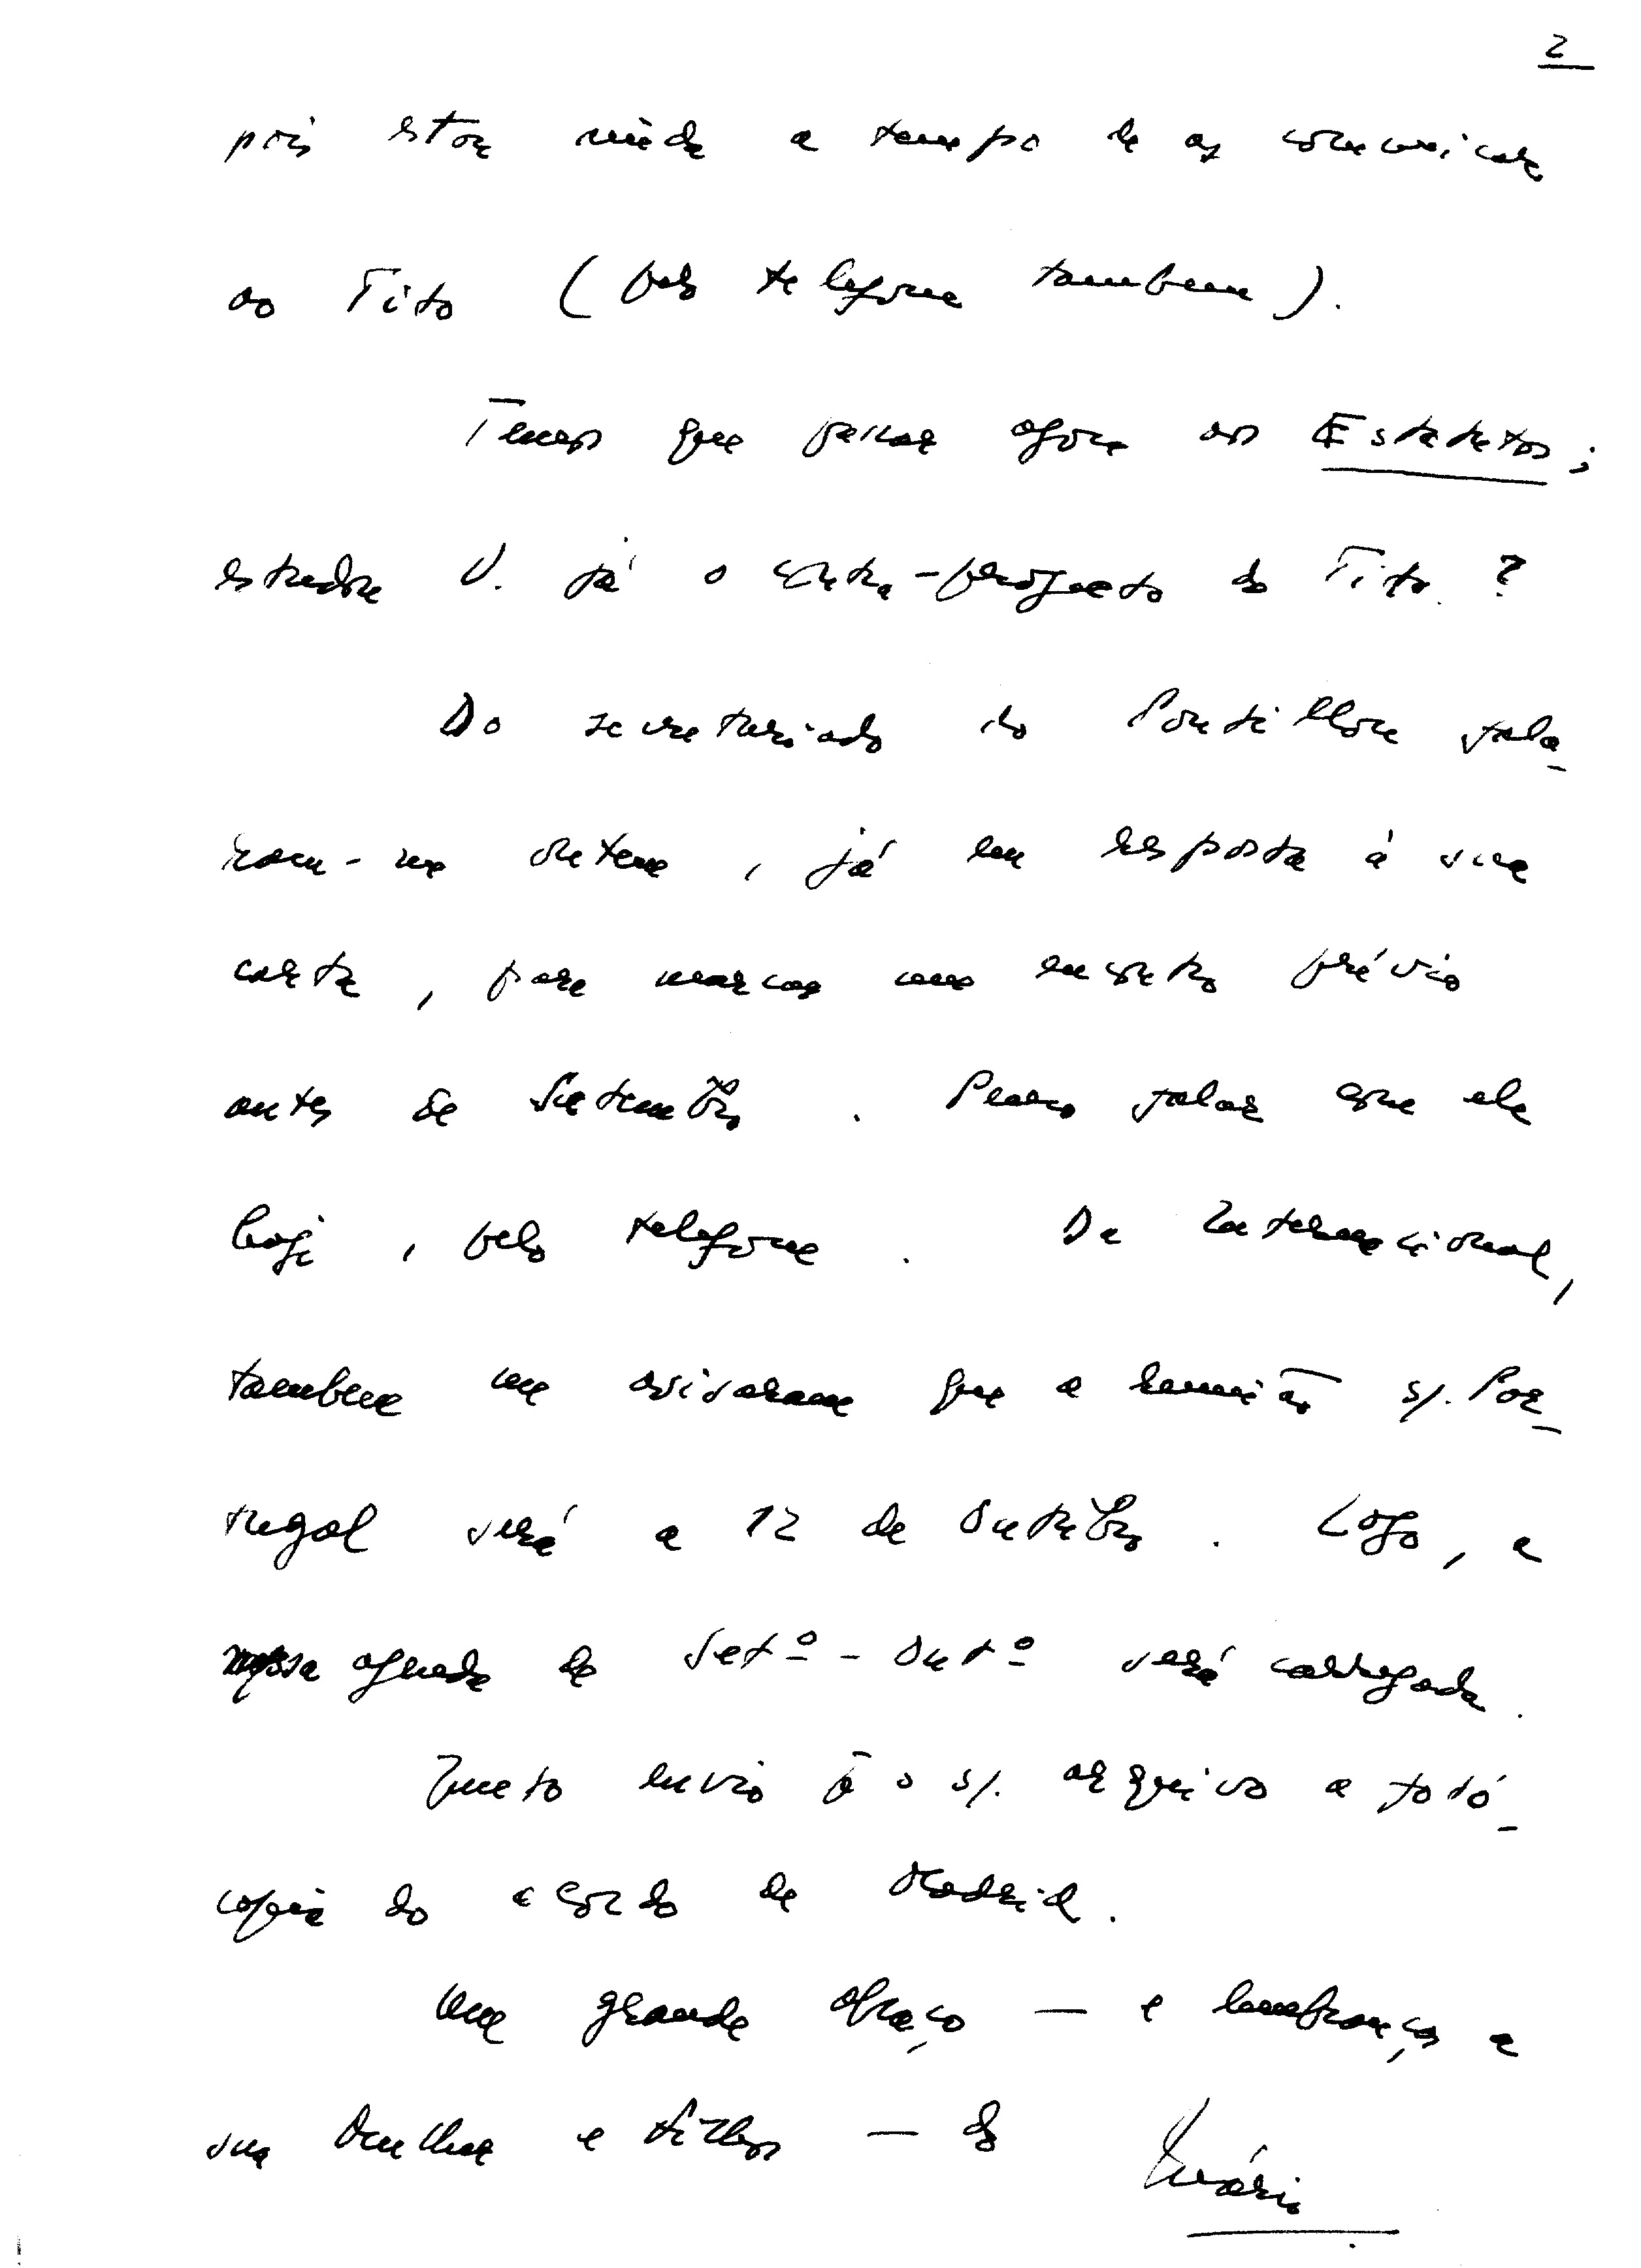 2
pois estou ainda a tempo de as comunicar
ao Tito (pelo telefone tambem).
Temos que pensar agora nos Estatutos;
estudou V. já o contra-projecto do Tito?
Do secretariado do Pontillon fala-
ram-me ontem, já em resposta à sua
carta, para marcar um encontro prévio
antes de Setembro. Penso falar com ele
hoje, pelo telefone. Da Internacional,
tambem me avisaram que a reunião s/. Por-
tugal será a 12 de Outubro. Logo, a
nossa agenda de Setº-Outº será carregada.
Junto envio p̄ o s/. arquivo a fotó-
copia do acordo de Madrid.
Um grande abraço — e lembranças a
sua Mulher e Filhos — do
Mário